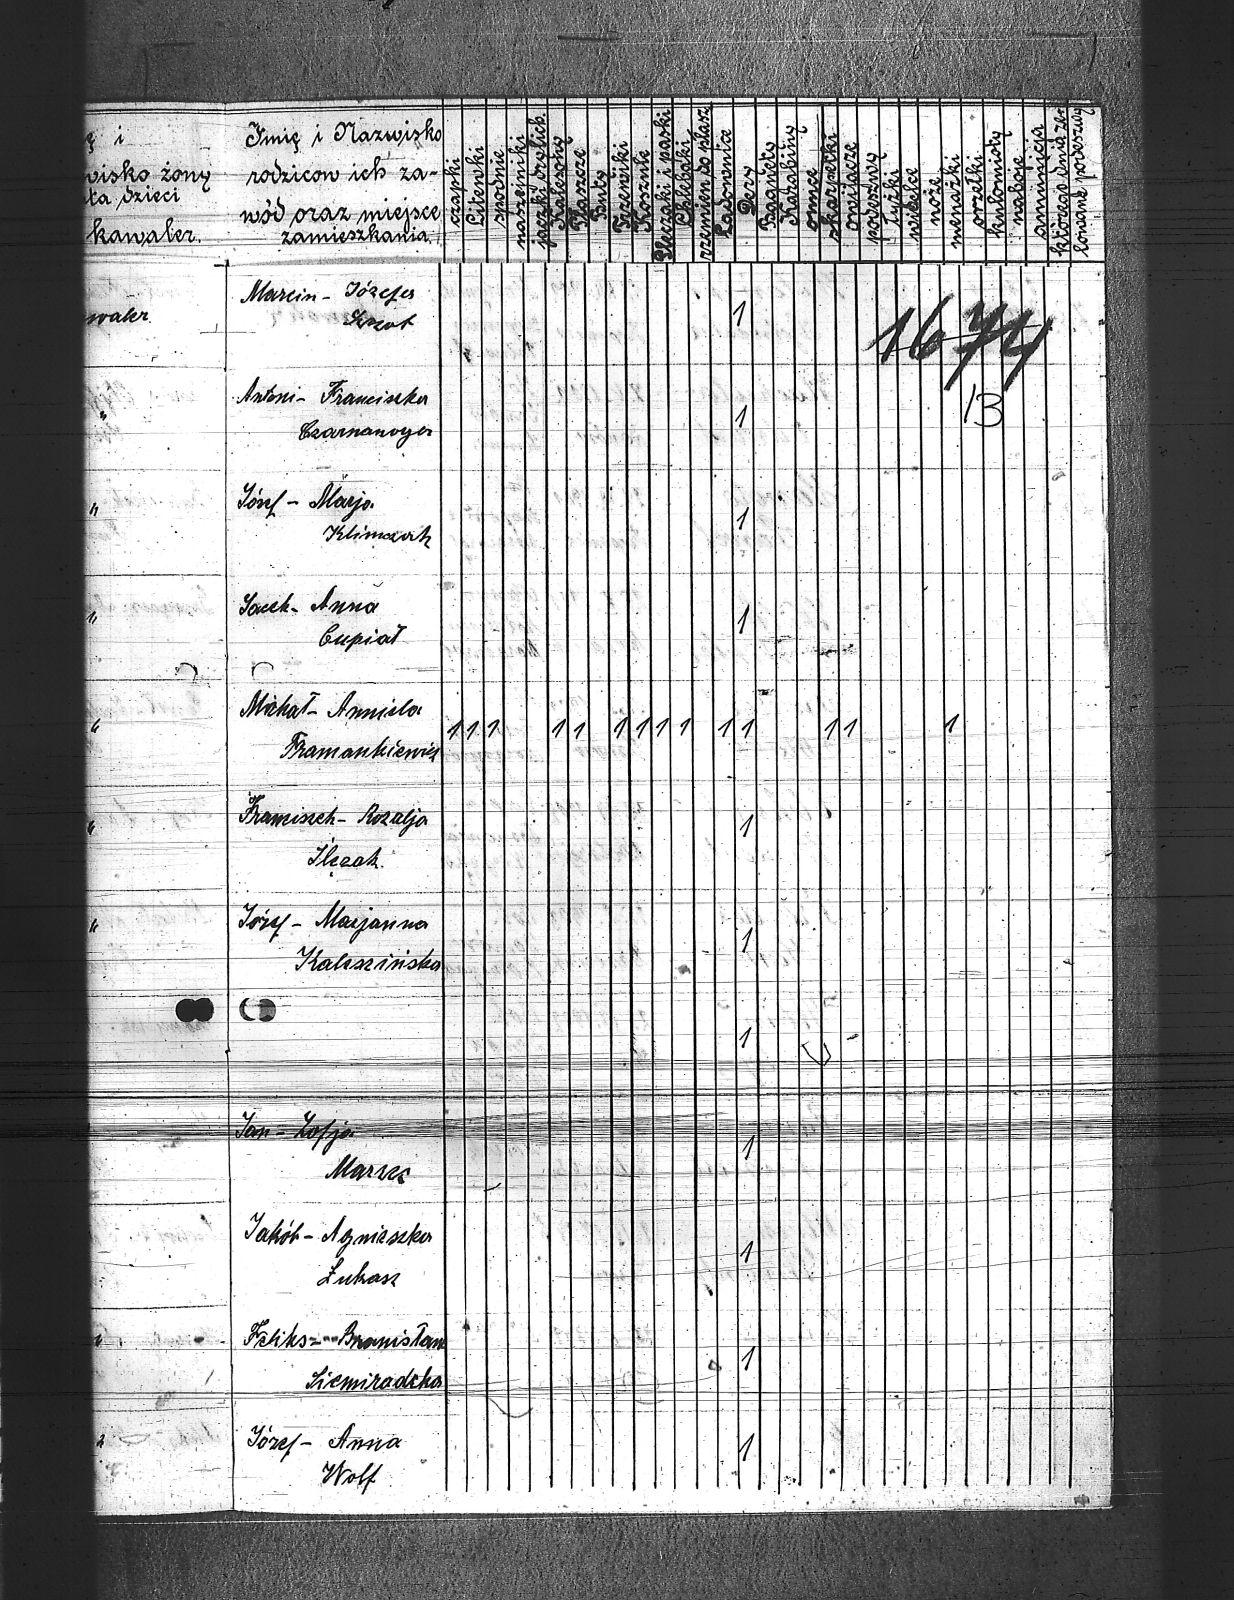 ę i
wisko żony
ta dzieci
kawaler.
Imię i Nazwisko
rodziców ich za-
wód oraz miejsce
zamieszkania.
czapki
Litewki
spodnie
naszeiniki
Kalesony
Płaszcze
Buty
Koszule
Plecaki i paski
Chlebaki
rzemien do płasz
Ładownice
Dery
Bagnety
Karabiny
onuce
skarpetki
owijacze
podeszwy
łużki
widelce
noże
menażki
orzełki
naboje
amunicja
Marcin - Józefa
waler.
1
1674
Antoni - Franciszka
"
Czarnanoga
1
13
Józef - Marja
"
Klimczak
1
Jacek - Anna
"
Cupiał
1
Michał - Anniela
"
Framankiewicz
1 1 1 1 1 1 1 1 1 1 1 1 1 1
Franciszek - Rozalja
"
Ilczak
1
Józef - Marjanna
"
Kaleszińska
1
1
Jan - Zofja
Marzec
1
Jakób - Agnieszka
Łukasz
1
Feliks - Bronisława
"
Siemiradzka
1
Józef - Anna
Wolf
1